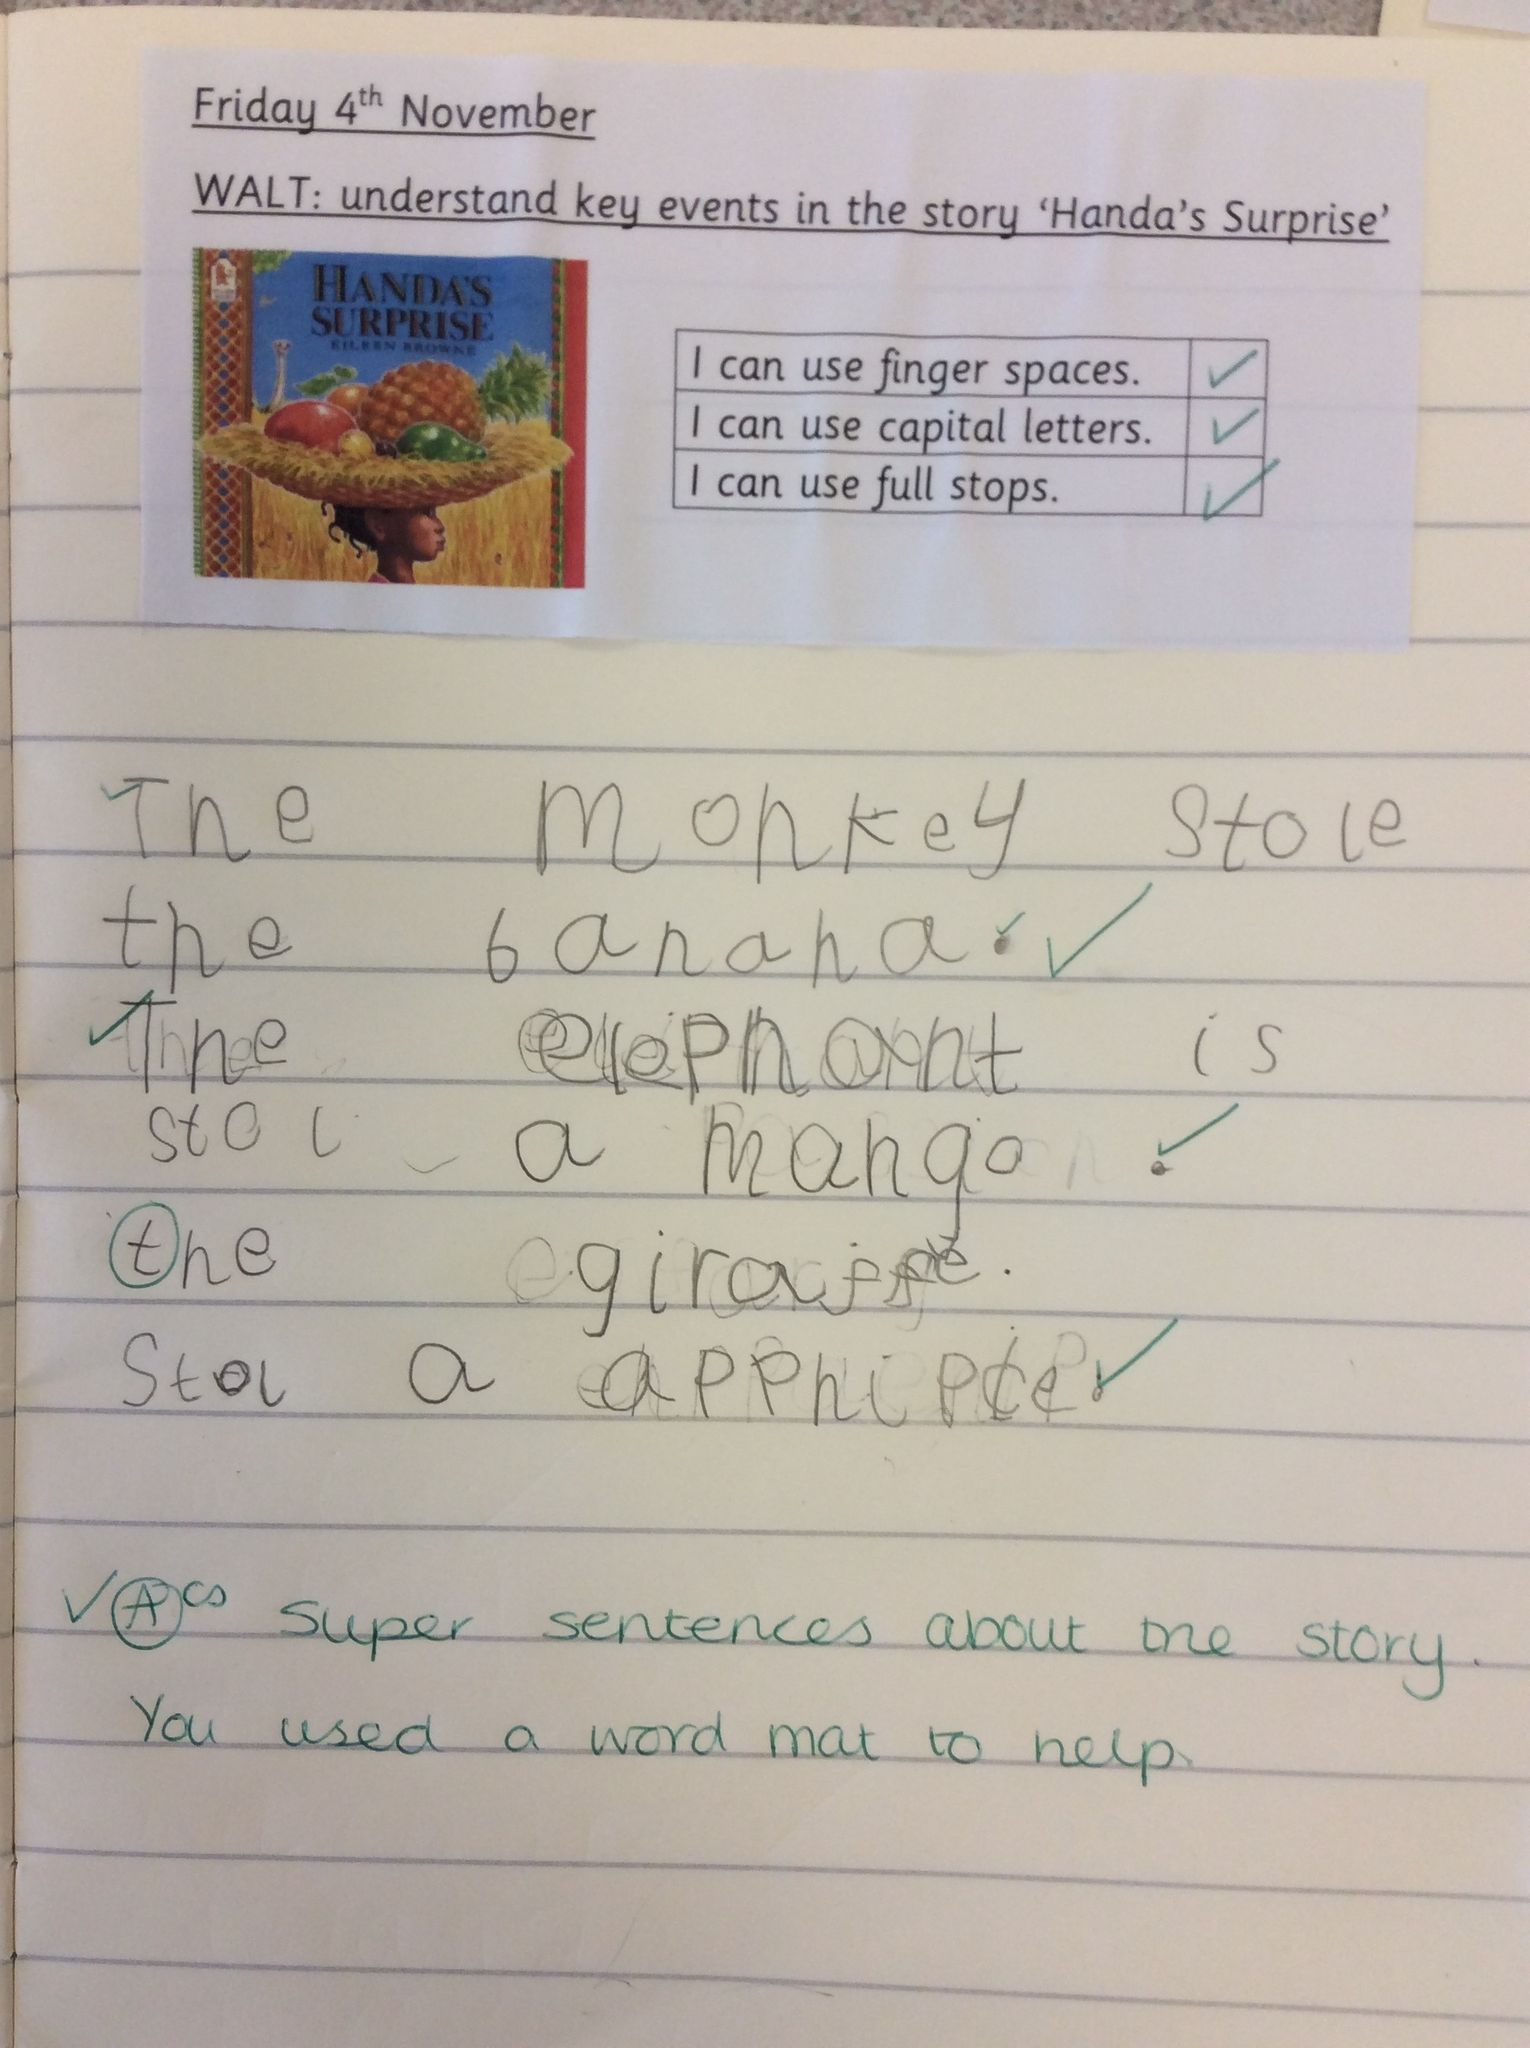 Friday 4th November
WALT: understand key events in the story ‘Handa’s Surprise’
HANDA'S
SURPRISE
EILEEN BROWNE
I can use finger spaces. ✓
I can use capital letters. ✓
I can use full stops. ✓
The monkey stole
the banana.
The elephant is
stol a mango.
the giraffe.
Stol a
✓ A cs Super sentences about the story.
You used a word mat to help.